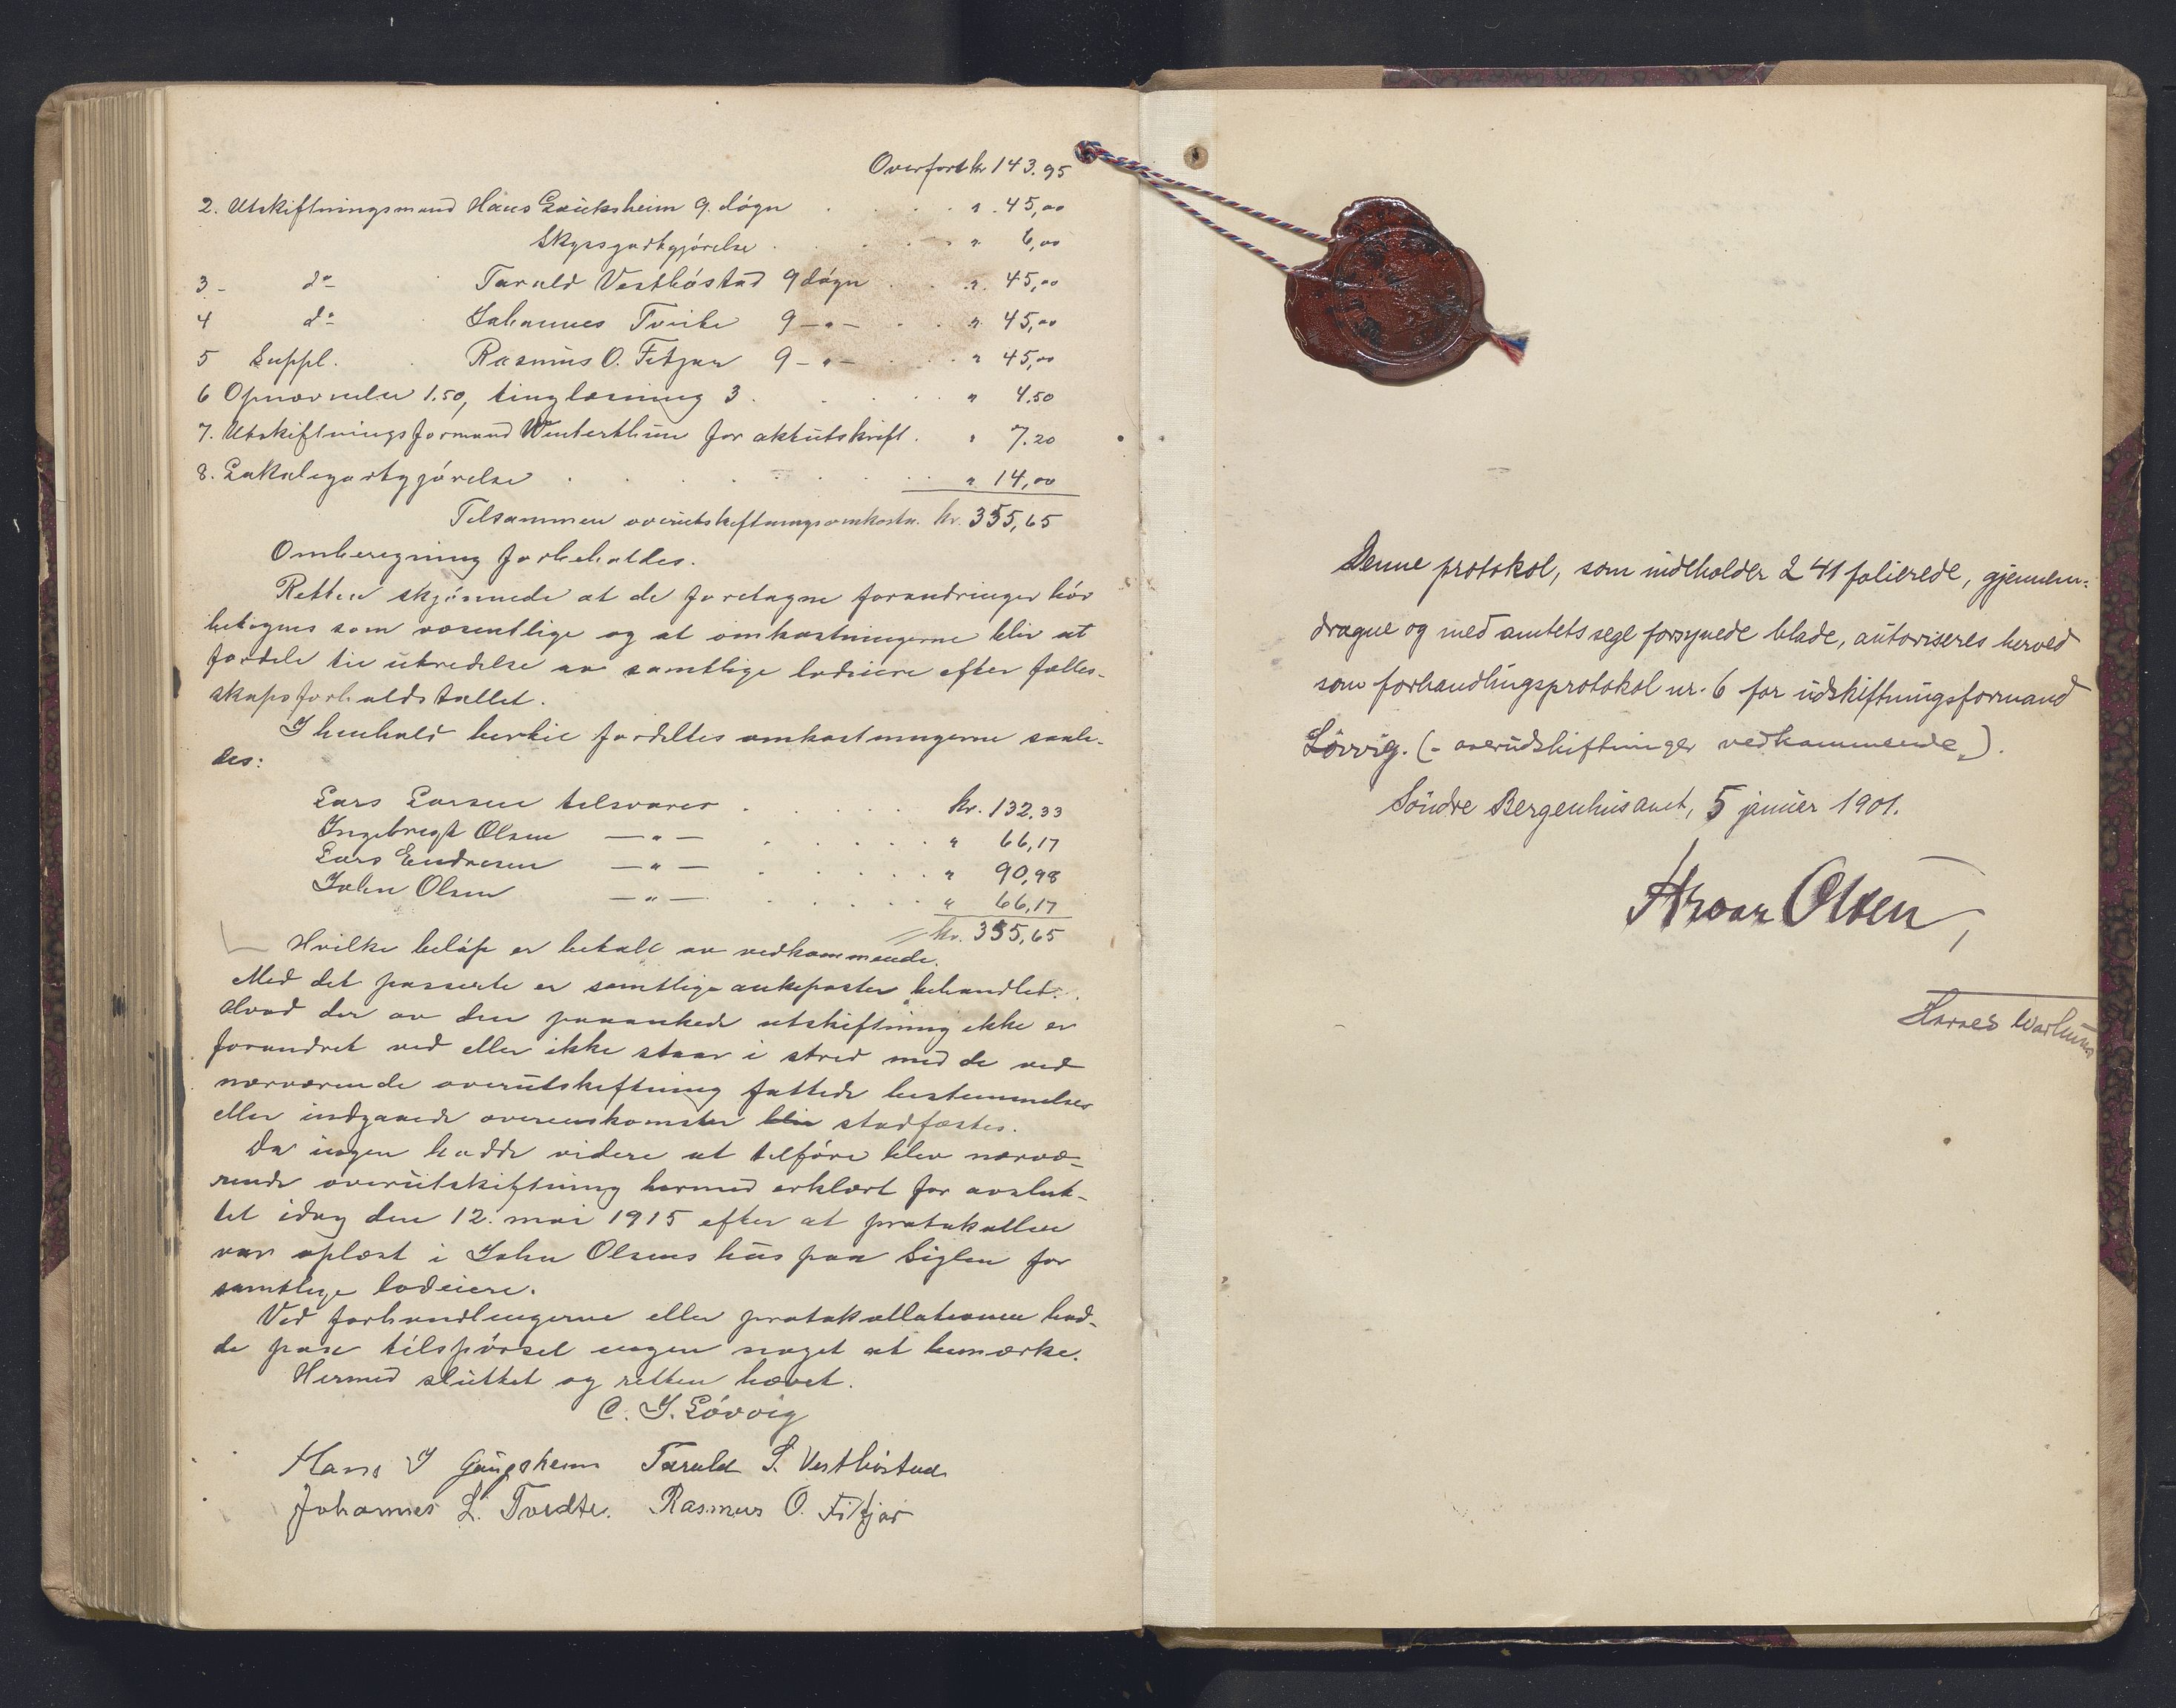 Overført kr 143.95
2. Utskiftningsmand Hans 9 døgn . . . " 45,00
Skyssgodtgjørelse . . . " 6,00
3 - do Tarald Vestbøstad 9 døgn . . " 45,00
4 do Johannes Tveite 9 - " - . . " 45,00
5 Suppl. Rasmus O. Fitjar 9 - " - . . . " 45,00
6 Opnævnelse 1.50, tinglæsning 3 . . . . " 4.50
7. Utskiftningsformand Winterthun for aktutskrift . " 7.20
8. Lokalegodtgjørelse . . . . . " 14,00
Tilsammen overutskiftningsomkostn. kr. 355,65
Omberegning forbeholdes.
Retten skjønnede at de foretagne forandringer bør
betegnes som væsentlige og at omkostningerne blir at
fordele til utredelse av samtlige lodeiere efter fælles-
skapsforholdstallet.
I henhold hertil fordeltes omkostningerne saale-
des:
Lars Larsen tilsvarer . . . . . kr. 132.33
Ingebrigt Olsen — " — . . . . . " 66,17
Lars Endresen — " — . . . . . " 90,98
John Olsen — " — . . . . . " 66,17
kr. 355,65
Hvilke beløp er betalt av vedkommende.
Med det passerte er samtlige ankeposter behandlet.
Hvad der av den paaankede utskiftning ikke er
forandret ved eller ikke staar i strid med de ved
nærværende overutskiftning fattede bestemmelser
eller indgaaede overenskomster blir stadfæstes.
Da ingen hadde videre at tilføre blev nærvæ-
rende overutskiftning hermed erklært for avslut-
tet idag den 12. mai 1915 efter at protokollen
var oplæst i John Olsens hus paa Siglen for
samtlige lodeiere.
Ved forhandlingerne eller protokollationen had-
de paa tilspørsel ingen noget at bemærke.
Hermed sluttet og retten hævet.
C. J. Løvvig
Hans J Tarald S. Vestbøstad
Johannes L. Tvedte. Rasmus O. Fitjar
Denne protokol, som indeholder 241 folierede, gjennem-
dragne og med amtets segl forsynede blade, autoriseres herved
som forhandlingsprotokol nr. 6 for udskiftningsformand
Løvvig. (- overudskiftninger vedkommende.).
Søndre Bergenhus amt, 5 januer 1901.
Hroar Olsen,